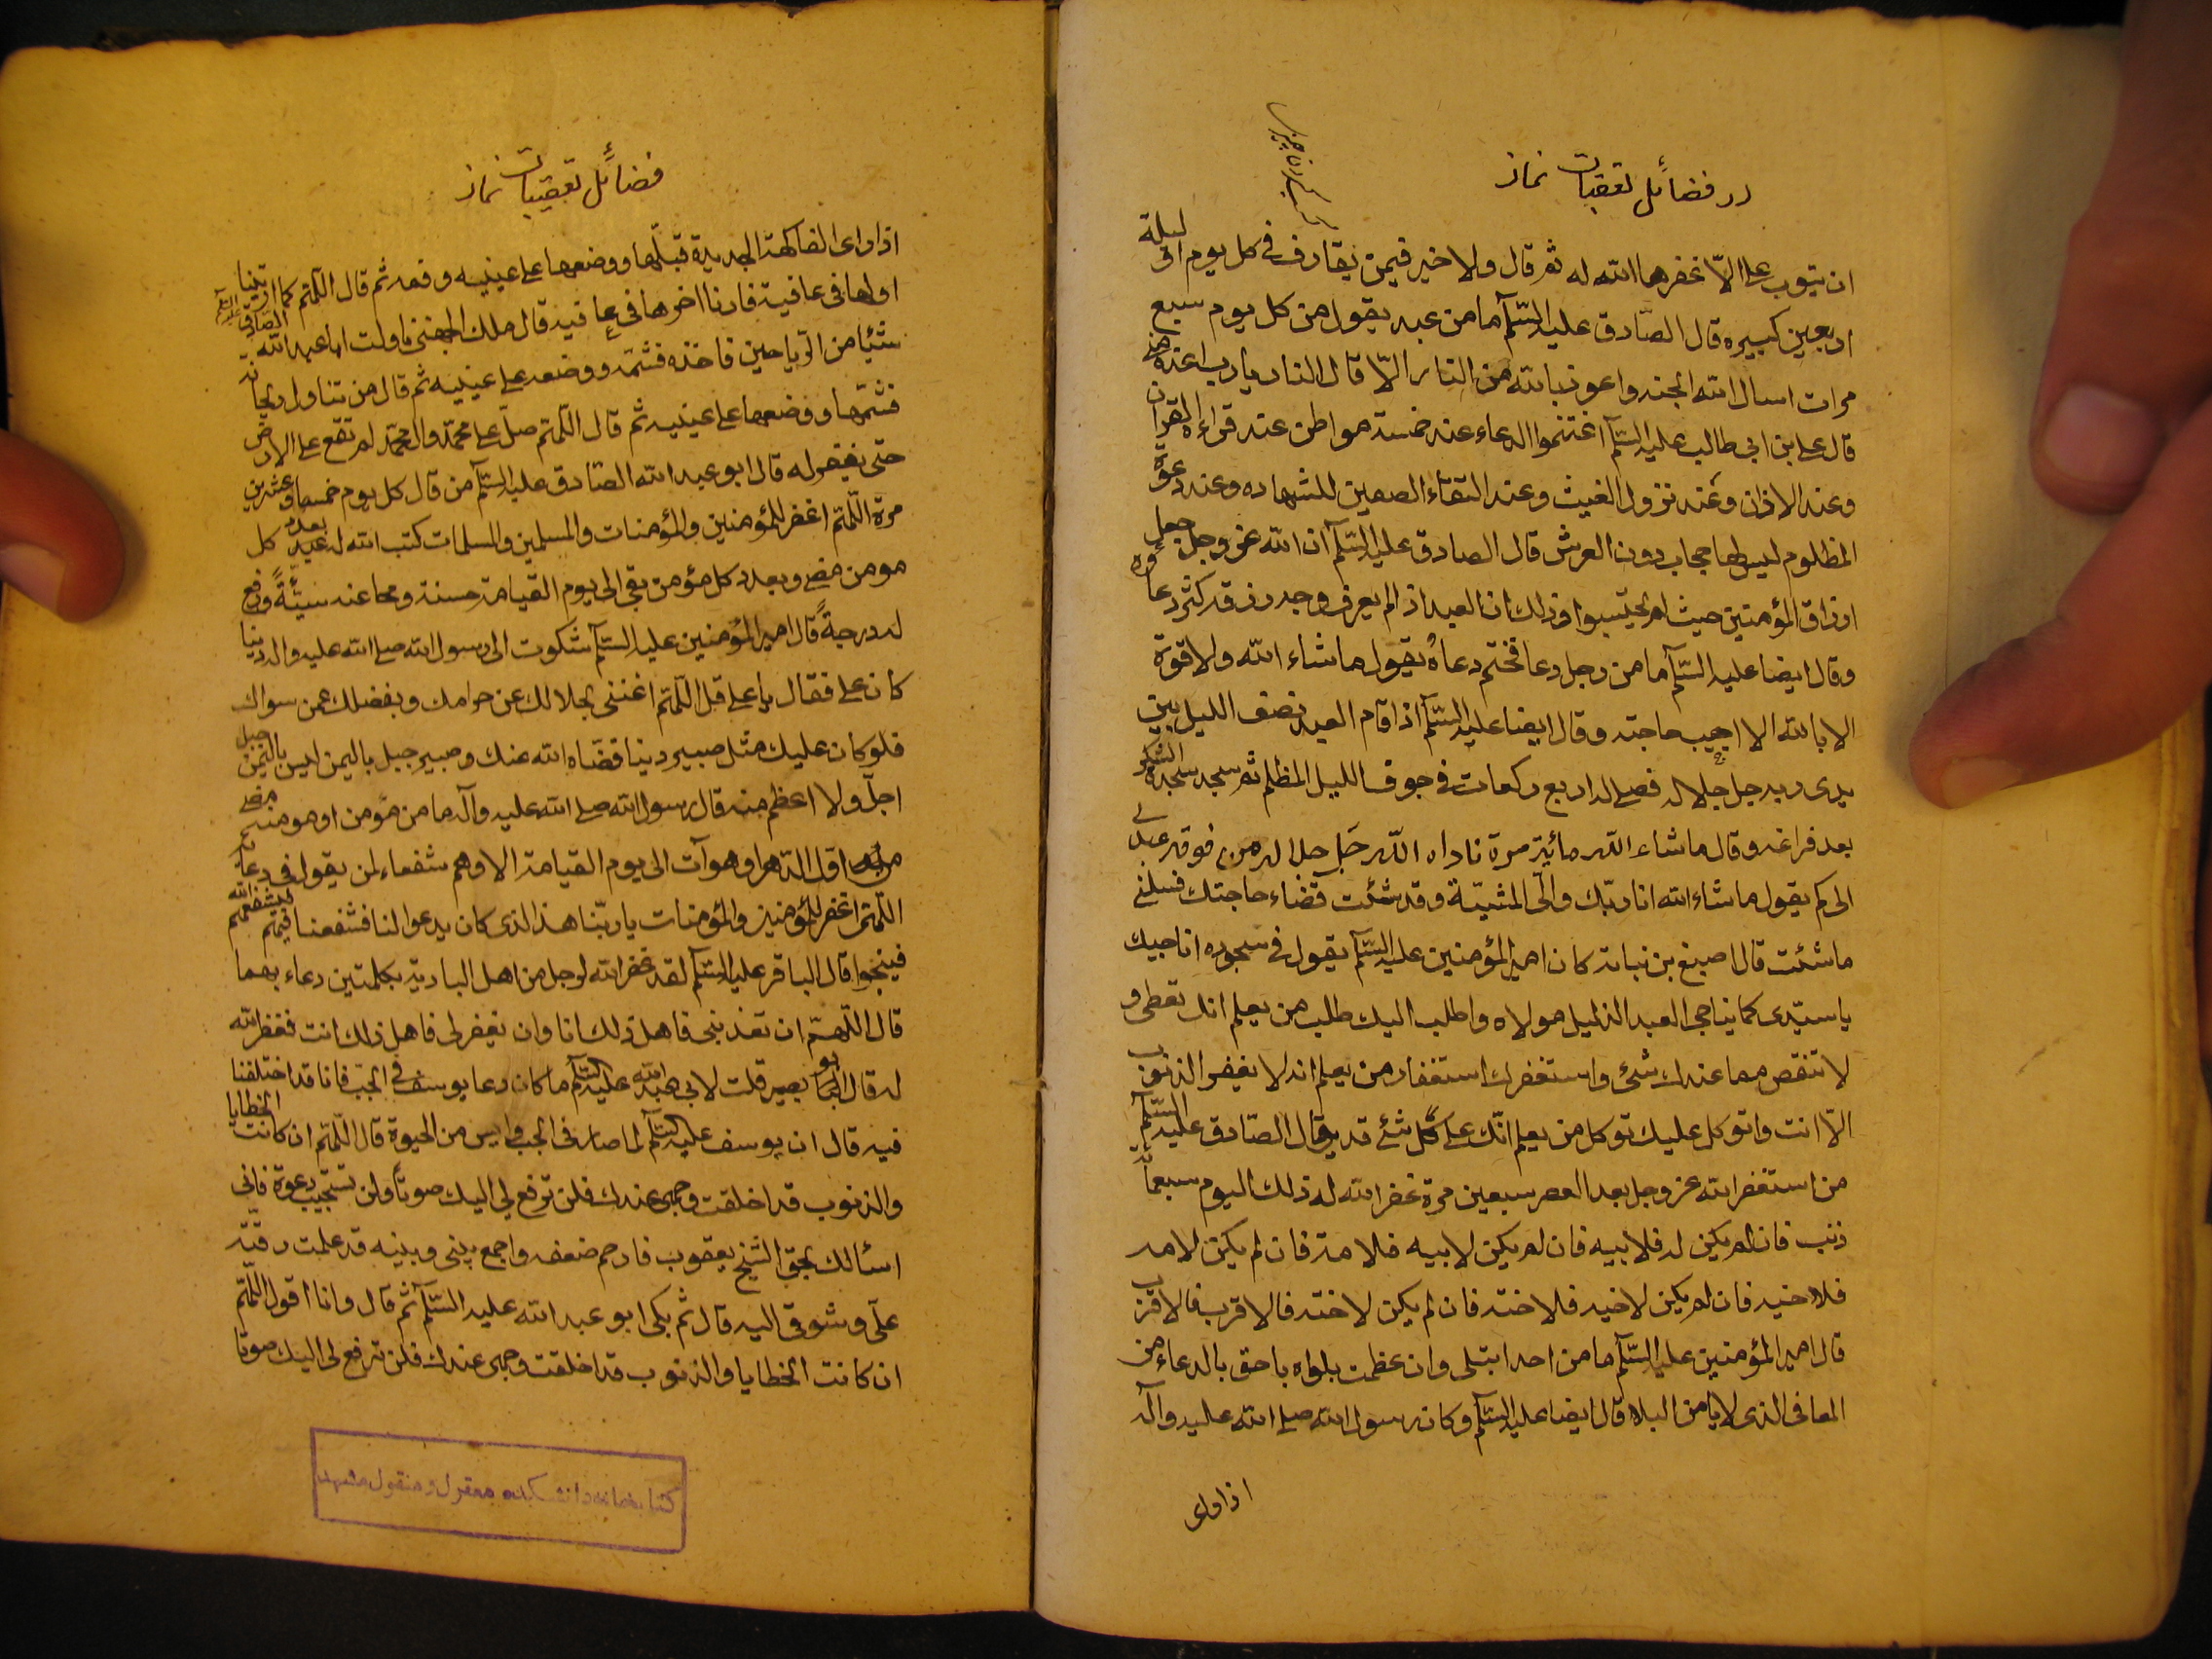 در فضائل تعقیبات نماز
ان یتوب علی الّا غفرها الله له ثم قال ولا خیر فیمن یقارف فی کل یوم او لیلة
اربعین کبیره قال الصّادق علیه السّلم ما من عبد یقول من کل یوم سبع
مرات اسال الله الجنه واعوذ بالله من النار الّا قال النار یارب اعذه منی
قال علی بن ابی طالب علیه السّلم اغتنموا الدعاء عند خمسة مواطن عند قراءة القرآن
وعند الاذان وعند نزول الغیث وعند التقاء الصفین للشهاده وعند دعوة
المظلوم لیس لها حجاب دون العرش قال الصادق علیه السّلم ان الله عز وجل جعل
ارزاق المؤمنین حیث لم یحتسبوا وذلک ان العبد اذا لم یعرف وجه رزقه کثر دعاؤه
وقال ایضا علیه السّلم ما من رجل دعا فختم دعاءه بقول ما شاء الله ولا قوة
الا بالله الا اجیب حاجته وقال ایضا علیه السّلم اذا قام العبد نصف اللیل بین
یدی ربه جل جلاله فصلی له اربع رکعات فی جوف اللیل المظلم ثم سجد سجدة الشکر
بعد فراغه وقال ما شاء الله مائة مرة ناداه الله جل جلاله من فوقه عبدی
الی کم یقول ما شاء الله انا ربّک والیّ المشیّة وقد شئت قضاء حاجتک فسلنی
ما شئت قال اصبغ بن نباته کان امیر المؤمنین علیه السّلم یقول فی سجوده اناجیک
یا سیّدی کما یناجی العبد الذلیل مولاه واطلب الیک طلب من یعلم انک تعطی و
لا تنقص مما عندک شئ واستغفرک استغفار من یعلم انه لا یغفر الذنوب
الّا انت واتوکل علیک توکل من یعلم انّک علی کل شئ قدیر قال الصّادق علیه السّلم
من استغفر الله عز وجل بعد العصر سبعین مرة غفر الله له ذلک الیوم سبعمأة
ذنب فان لم یکن له فلابیه فان لم یکن لابیه فلامه فان لم یکن لامه
فلاخیه فان لم یکن لاخیه فلاخته فان لم یکن لاخته فالاقرب فالاقرب
قال امیر المؤمنین علیه السّلم ما من احد ابتلی وان عظمت بلواه باحق بالدعاء من
المعافی الذی لا یامن البلاء قال ایضا علیه السّلم وکان رسول الله صلی الله علیه وآله
اذا رای
فضائل تعقیبات نماز
اذا رای الفاکهة الجدیدة قبّلها ووضعها علی عینیه وفمه ثم قال اللّهم کما اریتنا
اولها فی عافیة فارنا اخرها فی عافیه قال ملک الجهنی ناولت ابا عبد الله الصّادق علیه السّلم
شئیا من الریاحین فاخذه فشمّه ووضعه علی عینیه ثم قال من تناول ریحانة
فشمّها ووضعها علی عینیه ثم قال اللّهم صلّ علی محمّد وال محمّد لم تقع علی الارض
حتی یغفر له قال ابو عبد الله الصّادق علیه السّلم من قال کل یوم خمسا وعشرین
مرة اللّهم اغفر للمؤمنین والمؤمنات والمسلمین والمسلمات کتب الله له بعدد کل
مومن مضی وبعدد کل مؤمن بقی الی یوم القیامة حسنة ومحا عنه سیئةً ورفع
له درجةً قال امیر المؤمنین علیه السّلم شکوت الی رسول الله صلی الله علیه واله دینا
کان علی فقال یا علی قل اللّهم اغننی بحلالک عن حرامک وبفضلک عمن سواک
فلو کان علیک مثل صبیر دینا قضاه الله عنک وصبیر جبل بالیمن لیس بالیمن جبل
اجلّ ولا اعظم منه قال رسول الله صلی الله علیه وآله ما من مؤمن او مومنه مضی
من اول الدّهر او هو آت الی یوم القیامة الا وهم شفعاء لمن یقول فی دعائه
اللّهم اغفر للمؤمنین والمؤمنات یا ربّنا هذا الذی کان یدعو لنا فشفعنا فیه فیشفعهم الله
فینجوا قال الباقر علیه السّلم لقد غفر الله لرجل من اهل البادیة بکلمتین دعاء بهما
قال اللّهمّ ان تعذبنی فاهل ذلک انا وان تغفر لی فاهل ذلک انت فغفر الله
له قال ابو بصیر قلت لابی عبد الله علیه السّلم ما کان دعا یوسف فی الجبّ فانا قد اختلفنا
فیه قال ان یوسف علیه السّلم لما صار فی الجب وایس من الحیوة قال اللّهم ان کانت الخطایا
والذنوب قد اخلقت وجهی عندک فلن ترفع لی الیک صوتاً ولن تستجیب دعوة فانی
اسألک بحق الشیخ یعقوب فارحم ضعفه واجمع بینی وبینه قد علمت رقّته
علّی وشوقی الیه قال ثم بکی ابو عبد الله علیه السّلم ثم قال وانا اقول اللّهم
ان کانت الخطایا والذنوب قد اخلقت وجهی عندک فلن ترفع لی الیک صوتا
کتابخانه دانشکده معقول و منقول مشهد